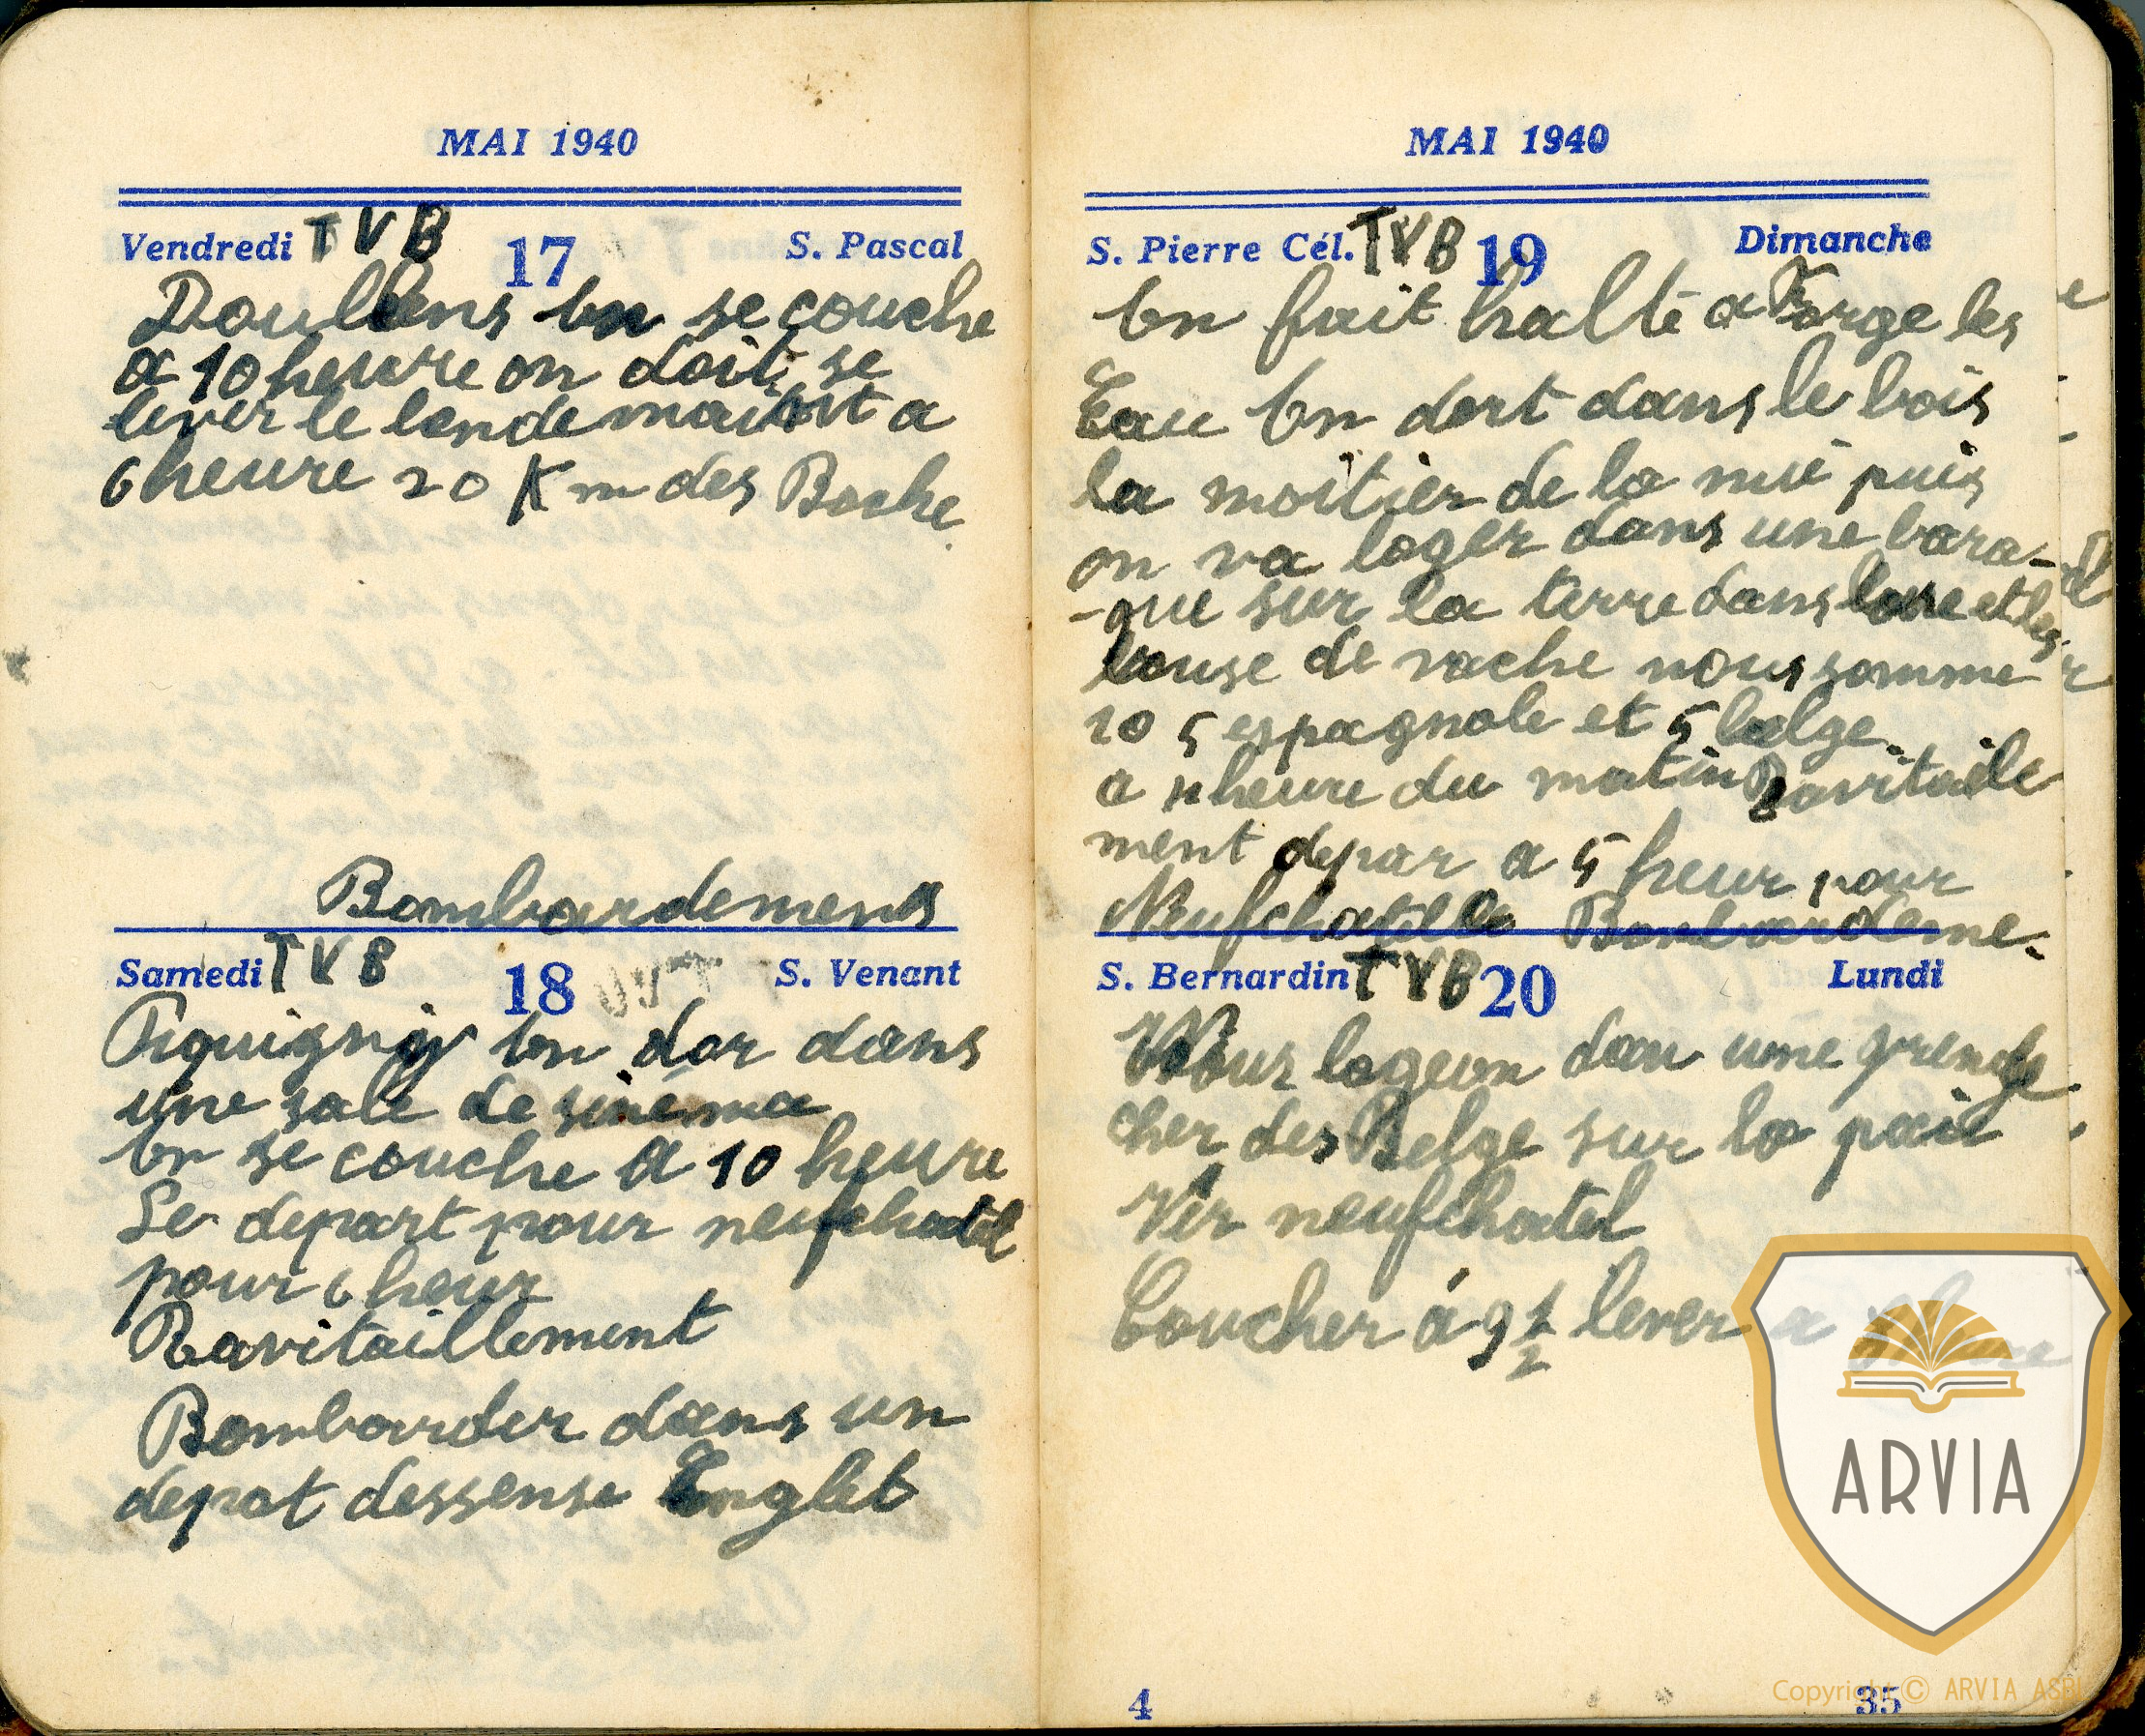 MAI 1940
Vendredi TVB 17 S. Pascal
Doullens On se couche
a 10 heure on doit se
lever le lendemain a
6 heure 20 Km des Boche
Bombardements
Samedi TVB 18 S. Venant
Piquigny On dor dans
une sale de sinéma
On se couche a 10 heure
Le depart pour neufchatel
pour 6 heur
Ravitaillement
Bombarder dans un
depot dessense Englet
MAI 1940
S. Pierre Cél. TVB 19 Dimanche
On fait halte a Forge les
Eau On dort dans le bois
la moitier de la nui puis
on va loger dans une bara-
-que sur la terre dans et les
bouse de vache nous somme
10 5 espagnole et 5 belge.
a heure du matin Ravitaile
ment depar a 5 heur pour
Neufchatel Bombardeme.
S. Bernardin TVB 20 Lundi
Nous logeon dan une grenge
cher des Belge sur la pail
Vir neufchatel
Coucher á 9 1/2 lever a
4 35
ARVIA
Copyright © ARVIA ASBL